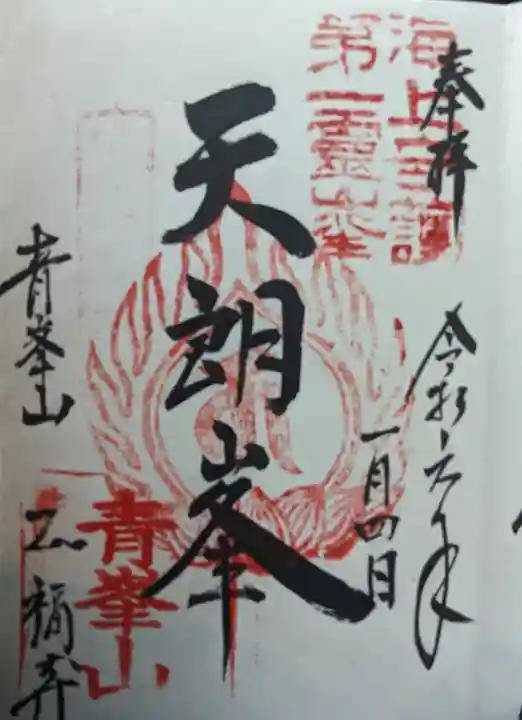 奉拝
令和六年
一月四日
海上守護
第一霊峯
天朗峯
青峯山
正福寺
青峯山